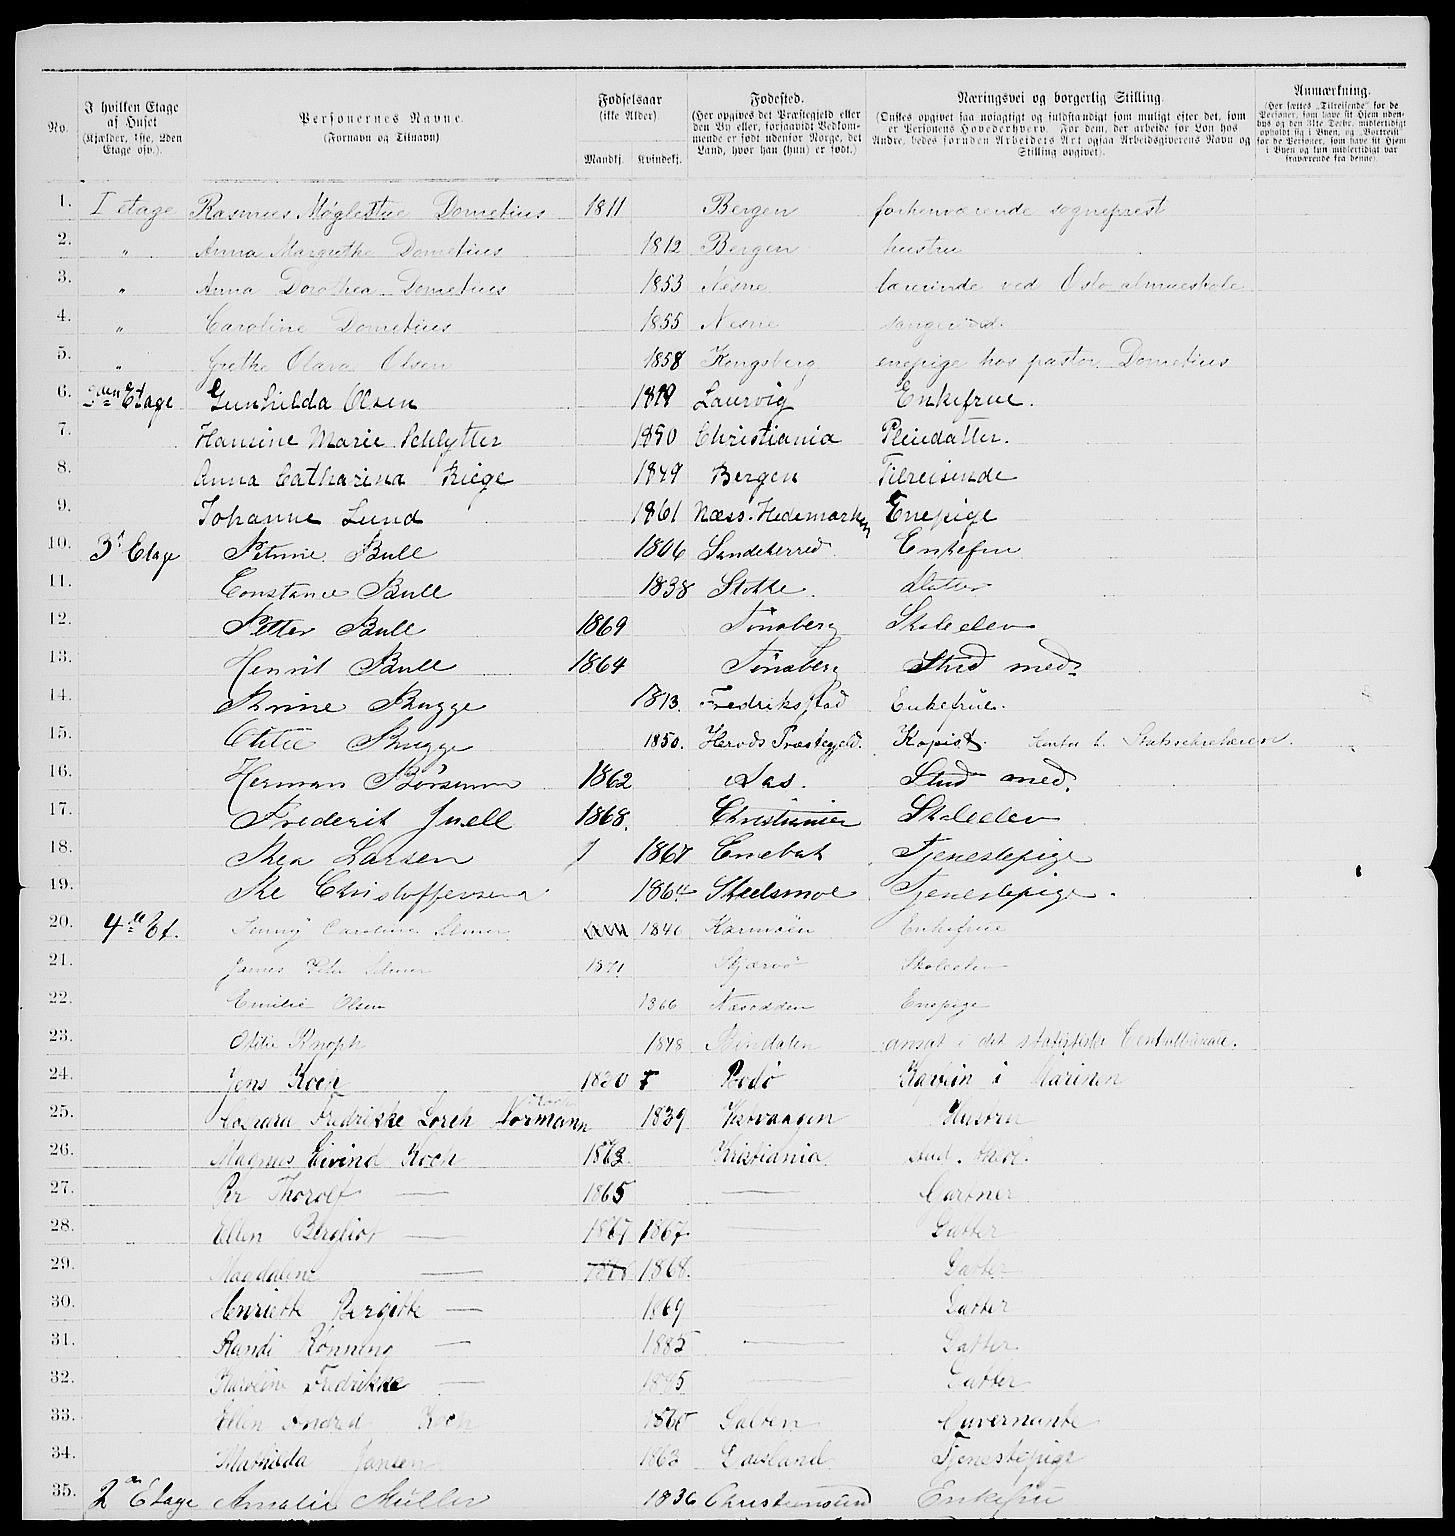 No.
I hvilken Etage af Huset (Kjælder, 1ste, 2den Etage osv.).
Personernes Navne. (Fornavn og Tilnavn).
Fødselsaar (ikke Alder).
Mandkj. Kvindekj.
Fødested. (Her opgives det Præstegjeld eller den By eller, forsaavidt Vedkommende er født udenfor Norge, det Land, hvor han (hun) er født.)
Næringsvei og borgerlig Stilling. (Ønskes opgivet saa nøiagtigt og fuldstændigt som muligt efter det, som er Personens Hovederhverv. For dem, der arbeide for Løn hos Andre, bedes foruden Arbeidets Art ogsaa Arbeidsgiverens Navn og Stilling opgivet).
Anmærkning. (Her sættes „Tilreisende" for de Personer, som have sit Hjem udenbys og den 31te Decbr. midlertidigt opholdt sig i Byen, og „Bortreist" for de Personer, som have sit Hjem i Byen og kun midlertidigt var fraværende fra denne).
1. I etage Rasmus Møglestue Dometius 1811 Bergen forhenværende sogneprest
2. " Anna Margrethe Dometius 1812 Bergen hustru
3. " Anna Dorothea Dometius 1853 Nesne lærerinde ved Oslo almueskole
4. " Caroline Dometius 1855 Nesne sangerinde.
5. " Grethe Olava Olsen 1858 Kongsberg enepige hos pastor Dometius
6. 2den Etage Gunhilda Olsen 1819 Laurvig Enkefrue.
7. Hansine Marie Schlytter 1850 Christiania Pleiedatter.
8. Anna Catharina Riege 1849 Bergen Tilreisende
9. Johanne Lund 1861 Næss. Hedemarken Enepige
10. 3d Etage Petrine Bull 1806 Sandeherred Enkefru
11. Constance Bull 1838 Stokke. datter
12. Petter Bull 1869 Tønsberg Skoleelev
13. Henrik Bull 1864 Tønsberg Stud med.
14. Bugge 1813. Fredriksstad Enkefrue.
15. Otilie Bugge 1850. Herøds Præstegjeld. Kopist. Statssekretæren.
16. Herman Børsum 1862 Aas. Stud med.
17. Frederik Juell 1868. Christiania Skoleelev
18. Thea Larsen 1867 Enebak Tjenestepige
19. Christoffersen 1864 Skedsmoe Tjenestepige.
20. 4de Et. Jenny Caroline Selmer 1840 Karmøen Enkefrue
21. James Peter Selmer 1871 Skjærvø Skoleelev
22. Emilie Olsen 1866 Næsodden Enepige
23. Otilie Knoph 1848 Bindalen ansat i det statistiske Centralbureau.
24. Jens Koch 1820 Bodø Kaptein i Marinen
25. Fredrikke Lorck Normann 1839 Husfru
26. Magnus Eivind Koch 1863. Kristiania stud. theol.
27. Per Thorolf — 1865 — Gartner
28. Ellen Bergliot — 1867 1867 — Datter
29. Magdalene — 1868 1868. — Datter
30. Henriette Bergitte — 1869 — Datter
31. Randi Rønning — 1885 — Datter
32. Karoline Fredrikke — — Datter
33. Ellen Koch Salten Guvernante
34. Mathilda Jansen 1863 Tjenestepige
35. 2den Etage Amalie Müller 1836 Christiansund Enkefru